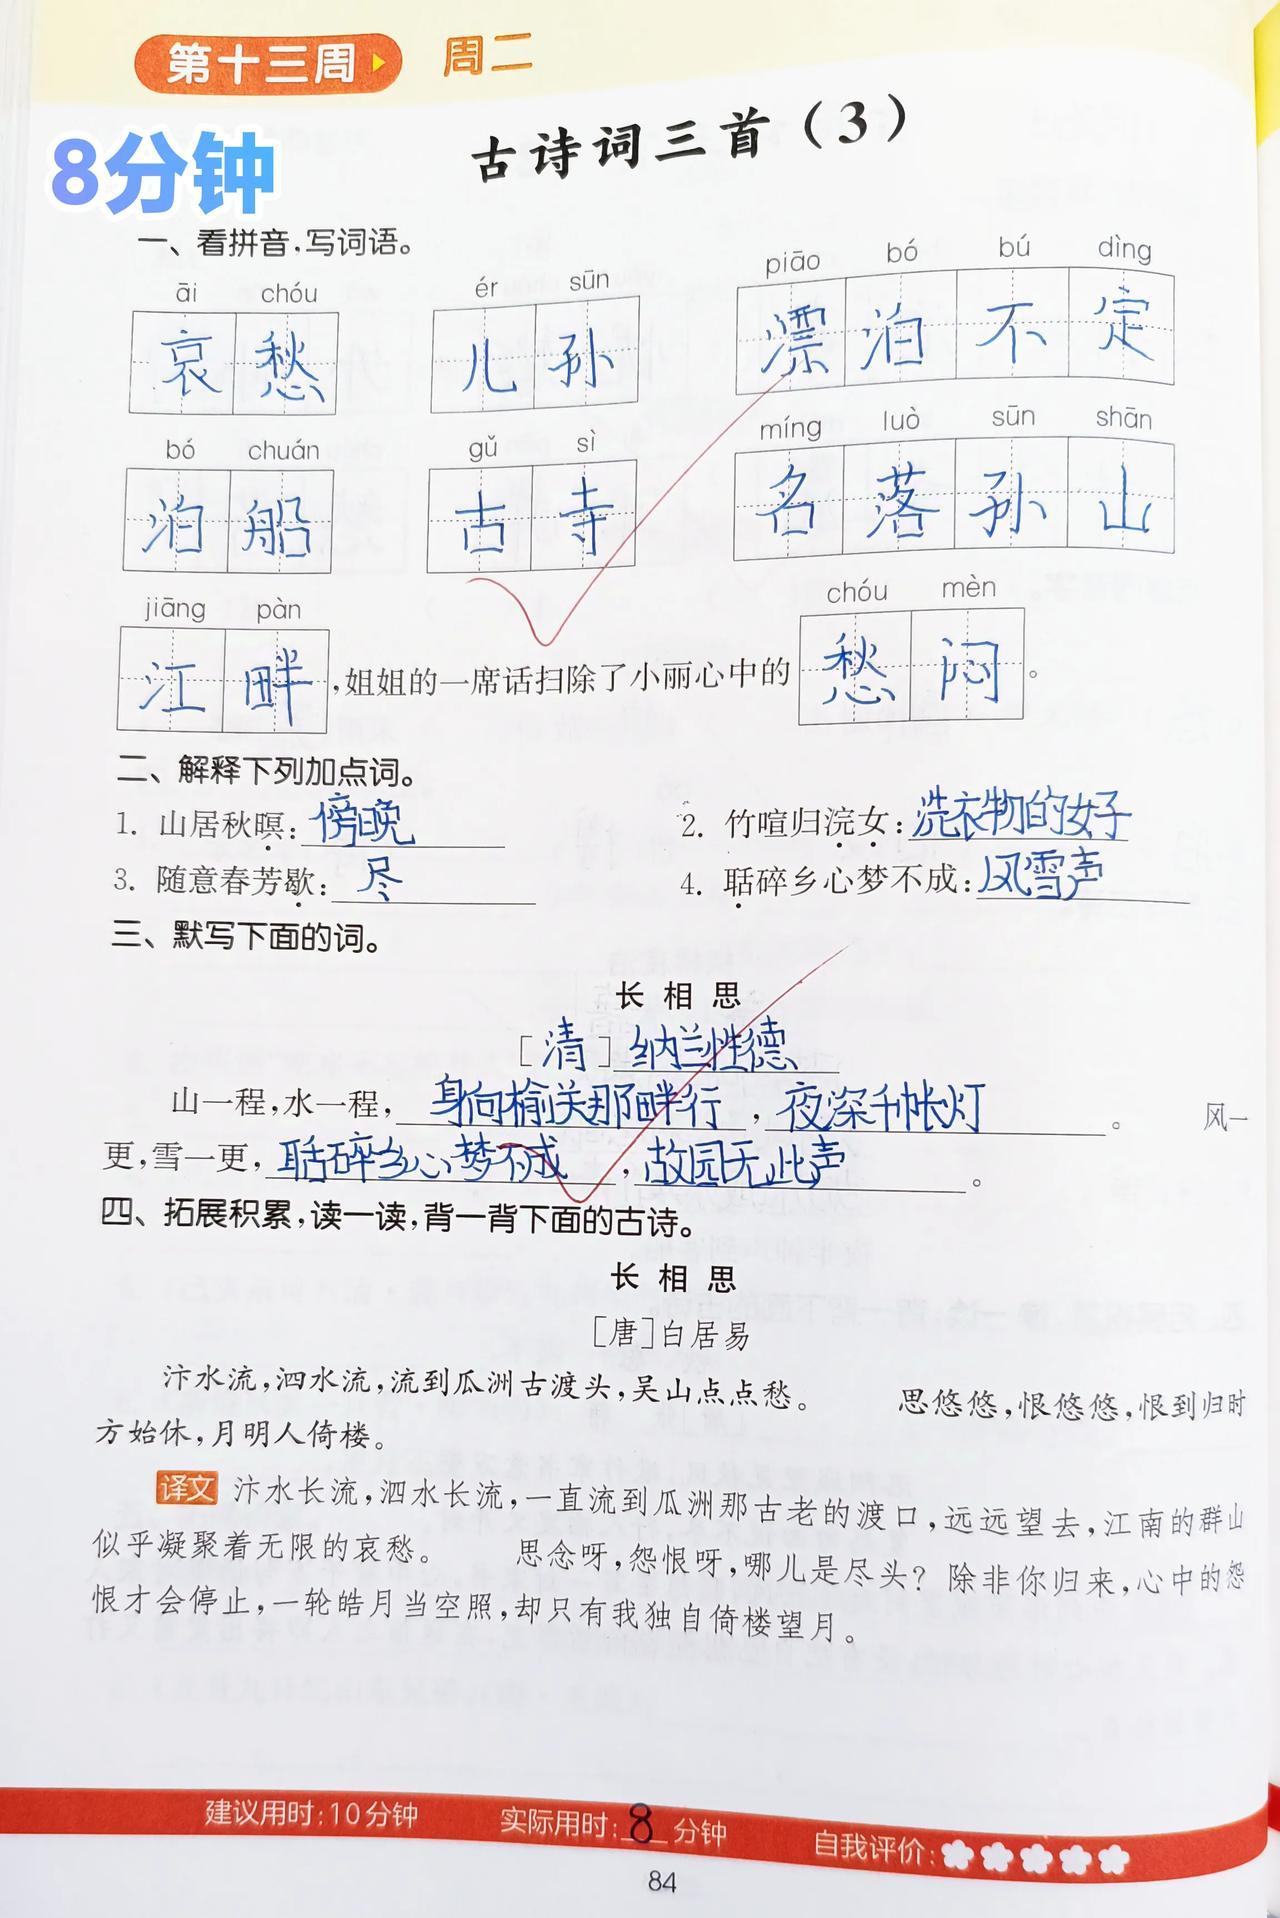 第十三周 周二
8分钟
古诗词三首（3）
一、看拼音,写词语。
āi chóu ér sūn piāo bó bú dìng
哀愁 儿孙 漂泊不定
bó chuán gǔ sì míng luò sūn shān
泊船 古寺 名落孙山
jiāng pàn chóu mèn
江畔,姐姐的一席话扫除了小丽心中的愁闷。
二、解释下列加点词。
1. 山居秋暝:傍晚 2. 竹喧归浣女:洗衣物的女子
3. 随意春芳歇:尽 4. 聒碎乡心梦不成:风雪声
三、默写下面的词。
长相思
[清]纳兰性德
山一程,水一程,身向榆关那畔行,夜深千帐灯。 风一
更,雪一更,聒碎乡心梦不成,故园无此声。
四、拓展积累,读一读,背一背下面的古诗。
长相思
[唐]白居易
汴水流,泗水流,流到瓜洲古渡头,吴山点点愁。 思悠悠,恨悠悠,恨到归时
方始休,月明人倚楼。
译文 汴水长流,泗水长流,一直流到瓜洲那古老的渡口,远远望去,江南的群山
似乎凝聚着无限的哀愁。 思念呀,怨恨呀,哪儿是尽头？除非你归来,心中的怨
恨才会停止,一轮皓月当空照,却只有我独自倚楼望月。
建议用时:10分钟 实际用时:8分钟 自我评价:
84